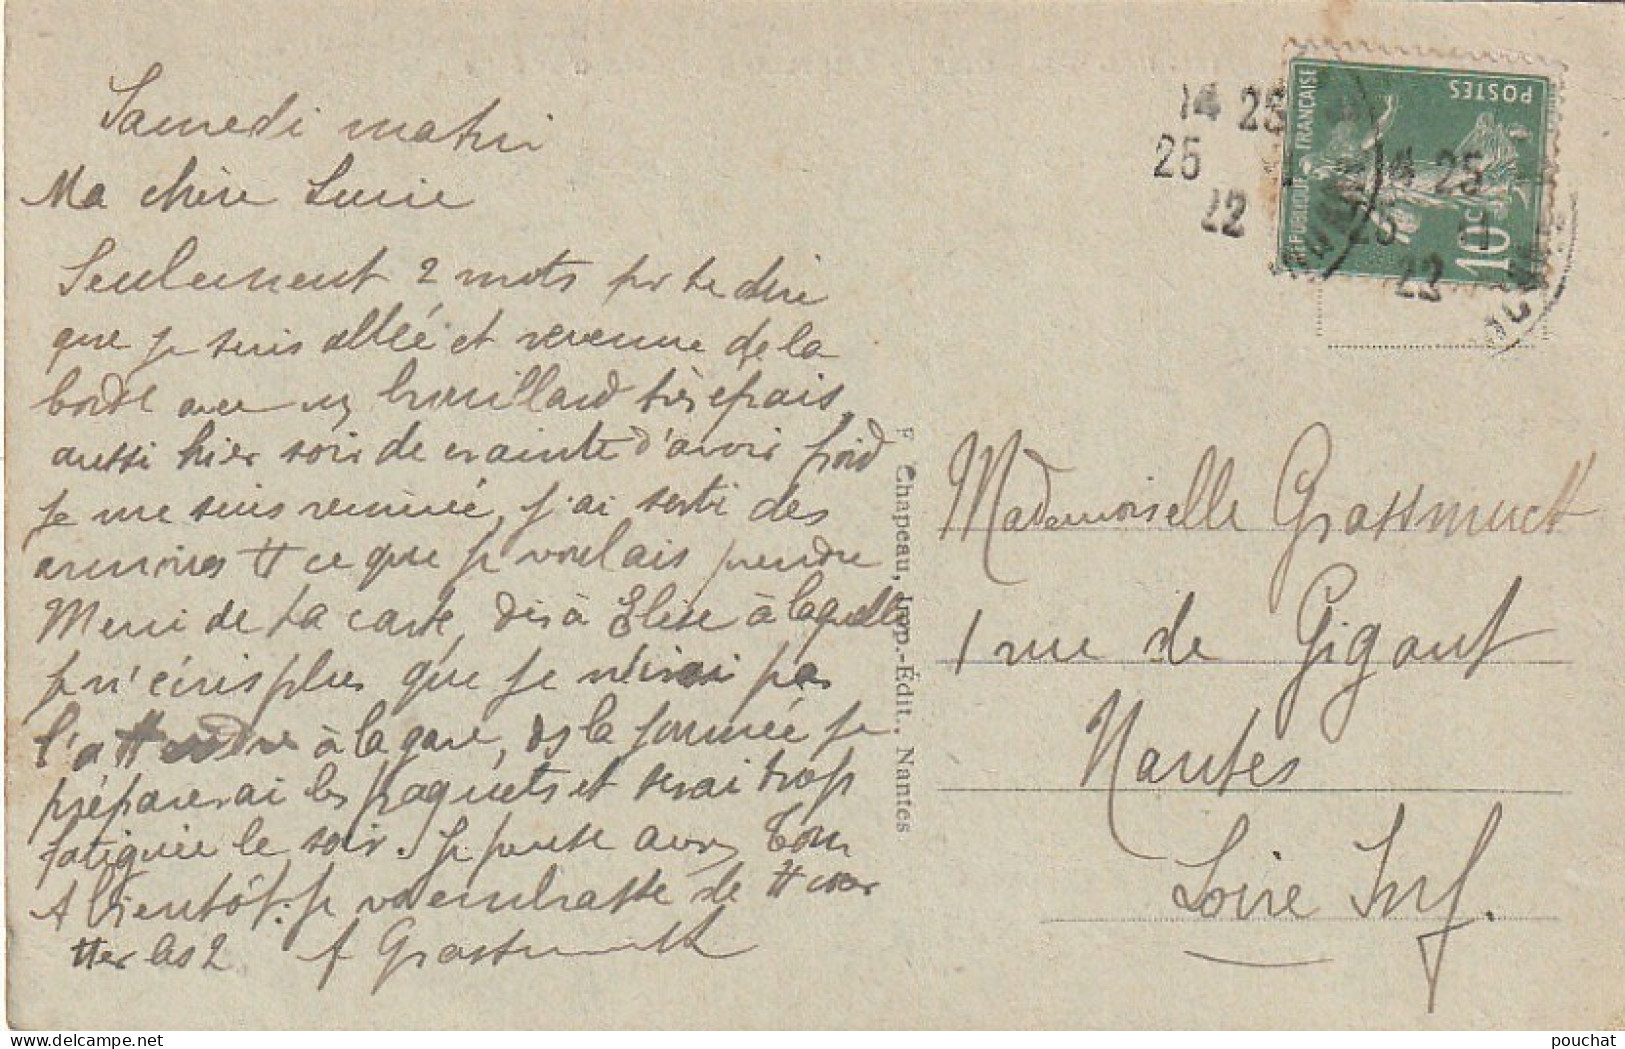 Samedi matin
Ma chère Lucie
Seulement 2 mots pr te dire
que je suis allée et revenue de la
borde avec un brouillard très épais,
aussi hier soir de crainte d'avoir froid
je me suis raminée, j'ai sorti des
armoires tt ce que je voulais prendre
Merci de ta carte, dis à Elise à laquelle
je n'écris plus que je n'irai pas
l'attendre à la gare, ds la journée je
préparerai les paquets et serai trop
fatiguée le soir. Je pense avoir tou
A bientôt: je v embrasse de tt cœur
ttes les 2 A Grassmuck
F. Chapeau, Imp.-Édit., Nantes
14 25
25
22
RÉPUBLIQUE FRANÇAISE
POSTES
10c
14 25
25 1
22
Mademoiselle Grassmuck
1 rue de Gigant
Nantes
Loire Inf.
pouchat